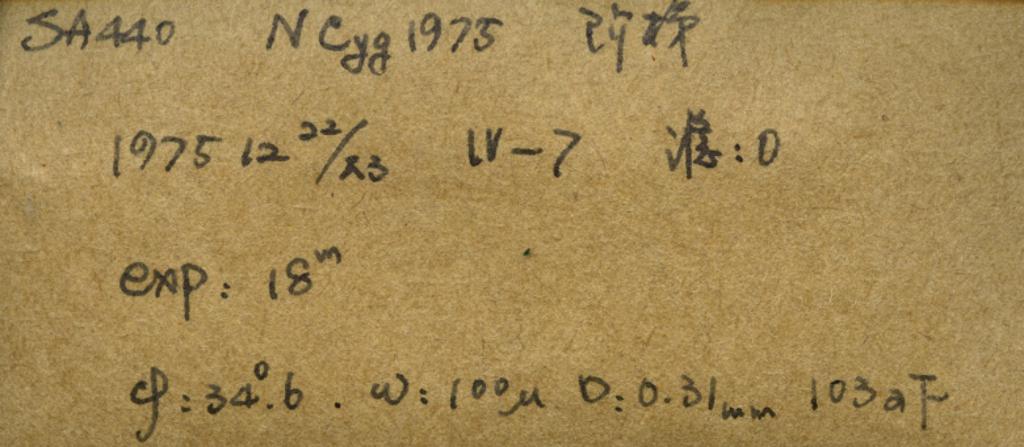 SA440 N Cyg 1975 阶梯
1975 12 22/23 IV-7 滤:0
exp: 18m
φ:34°.6. w:100μ D:0.31mm 103aF